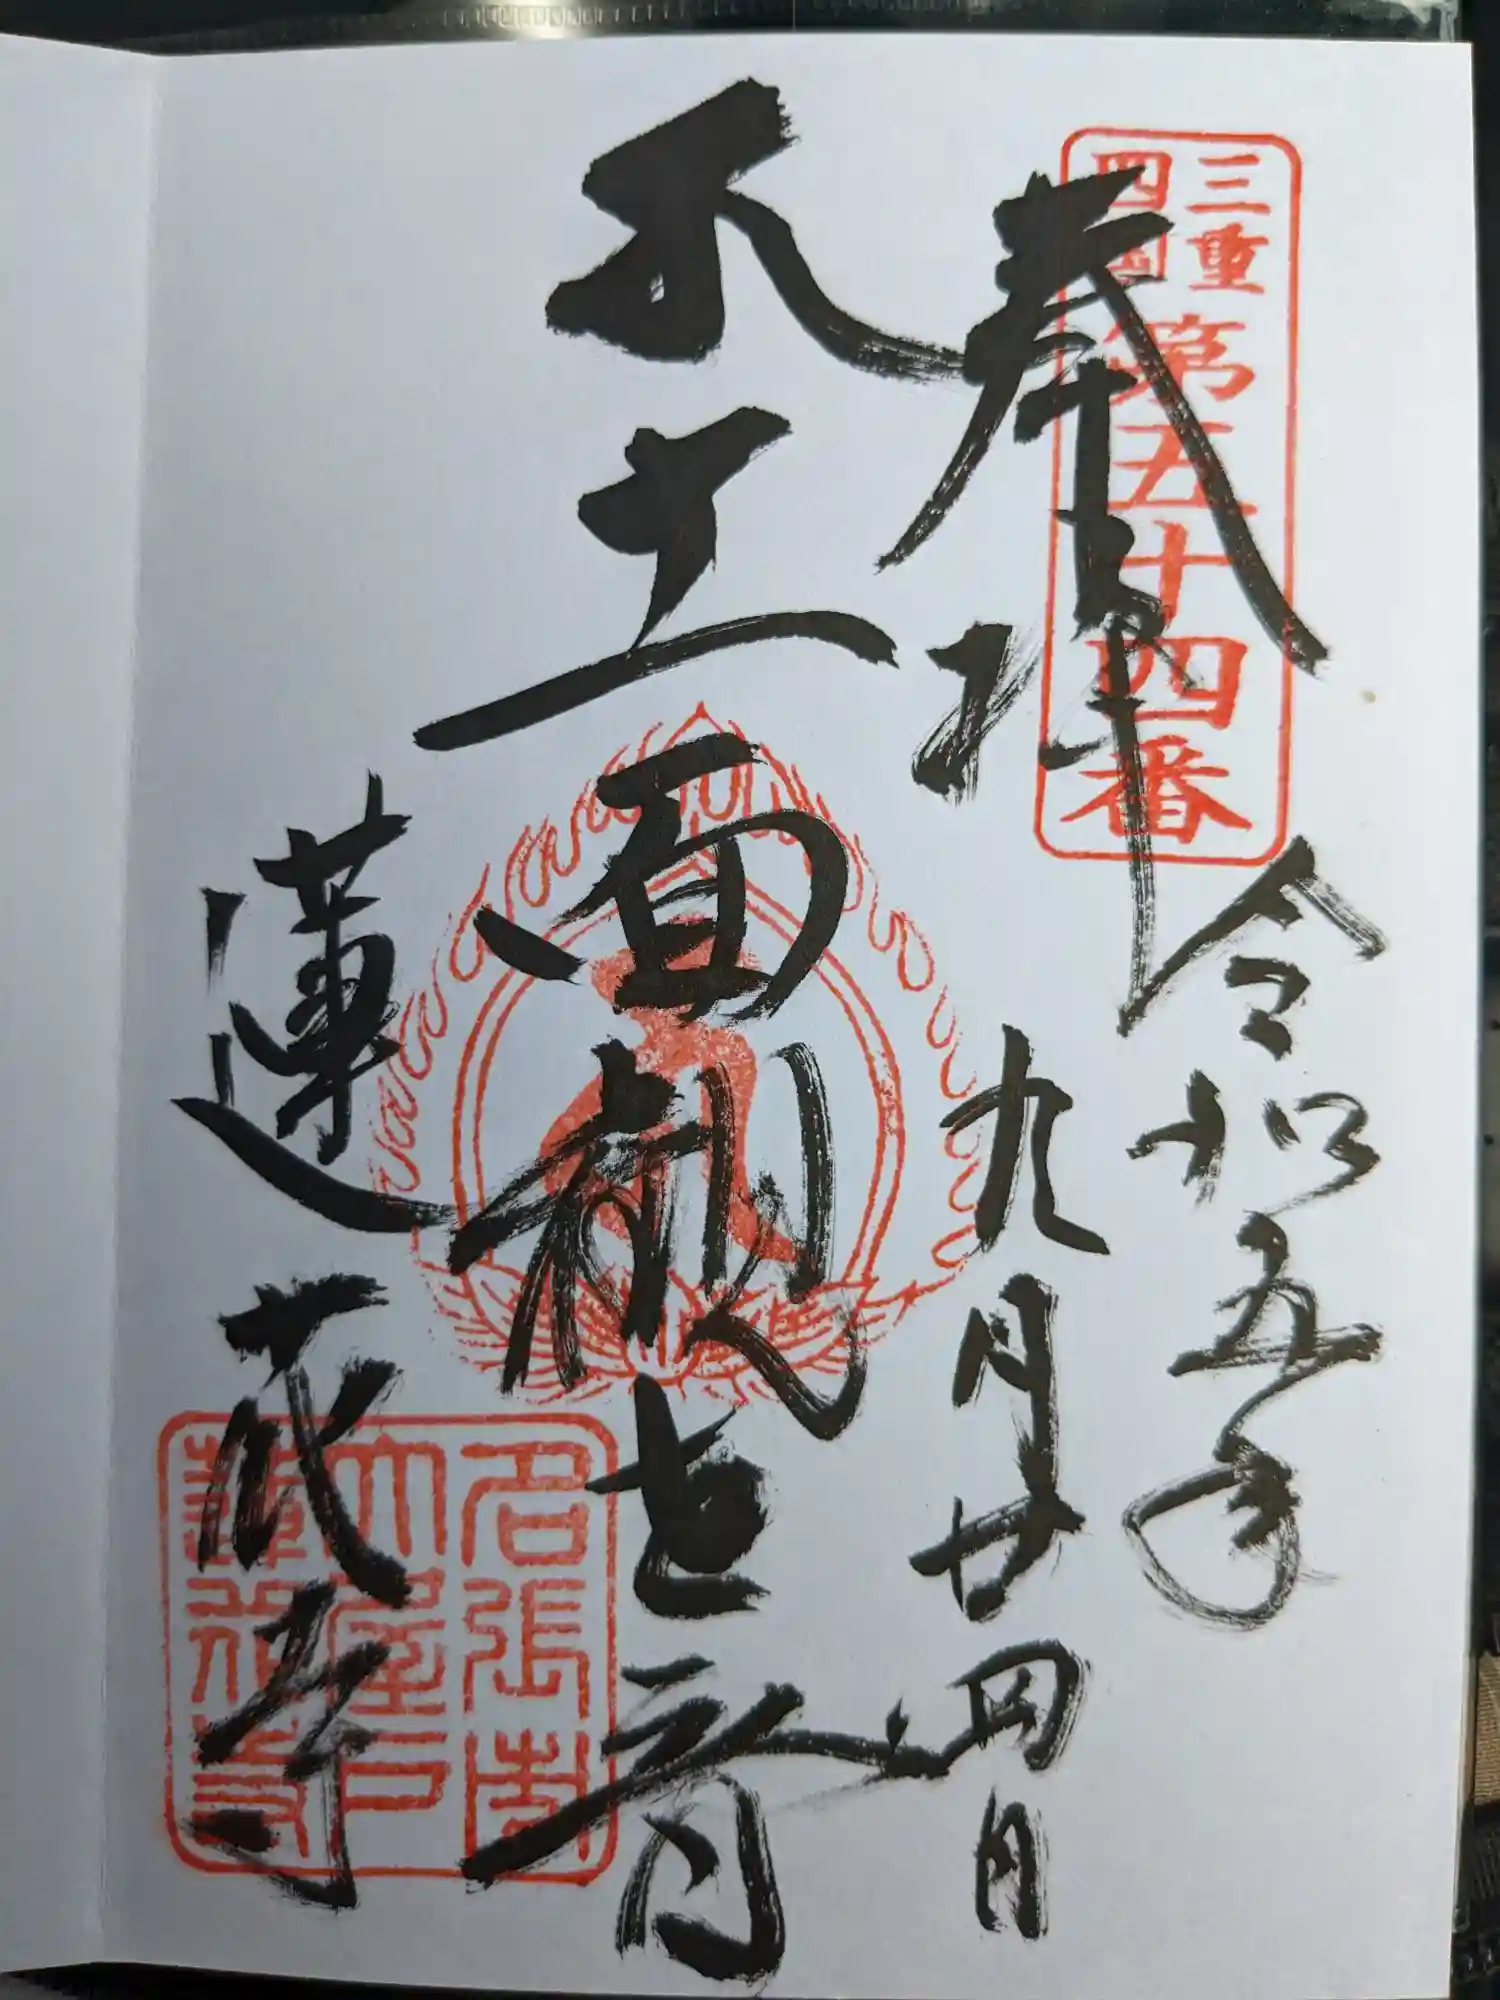 三重
四国
第五十四番
奉拝
令和五年
九月廿四日
十一面観世音
蓮花寺
名張市
大屋戸
蓮花寺